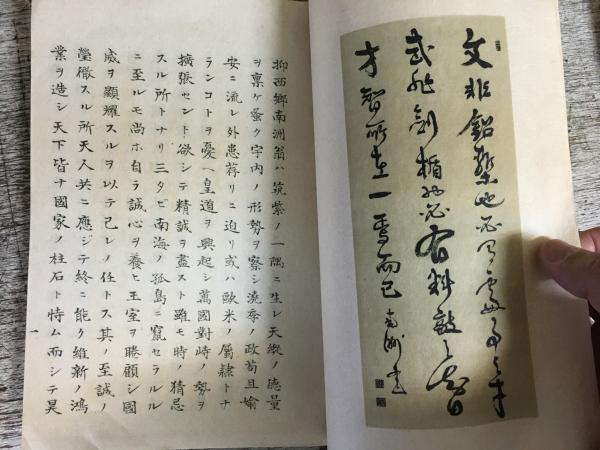 文非鉛槧也必有處事之才
武非劍楯也必有料敵之智
才智所在一焉而已 南洲書
抑西鄕南洲翁ハ筑紫ノ一隅ニ生レ天縱ノ德量
ヲ稟ケ蚤ク宇內ノ形勢ヲ察シ澆季ノ政苟且偸
安ニ流レ外患荐リニ迫リ或ハ歐米ノ屬隷トナ
ランコトヲ憂ヘ皇道ヲ興起シ萬國對峙ノ勢ヲ
擴張セント欲シテ精誠ヲ盡スト雖モ時ノ猜忌
スル所トナリ三タビ南海ノ孤島ニ竄セラルル
ニ至ルモ尚ホ自ラ誠心ヲ養ヒ王室ヲ睠顧シ國
威ヲ顯耀スルヲ以テ己レノ任トス其ノ至誠ノ
瑩徹スル所天人共ニ應ジテ終ニ能ク維新ノ鴻
業ヲ造シ天下皆ナ國家ノ柱石ト恃ム而シテ昊
一